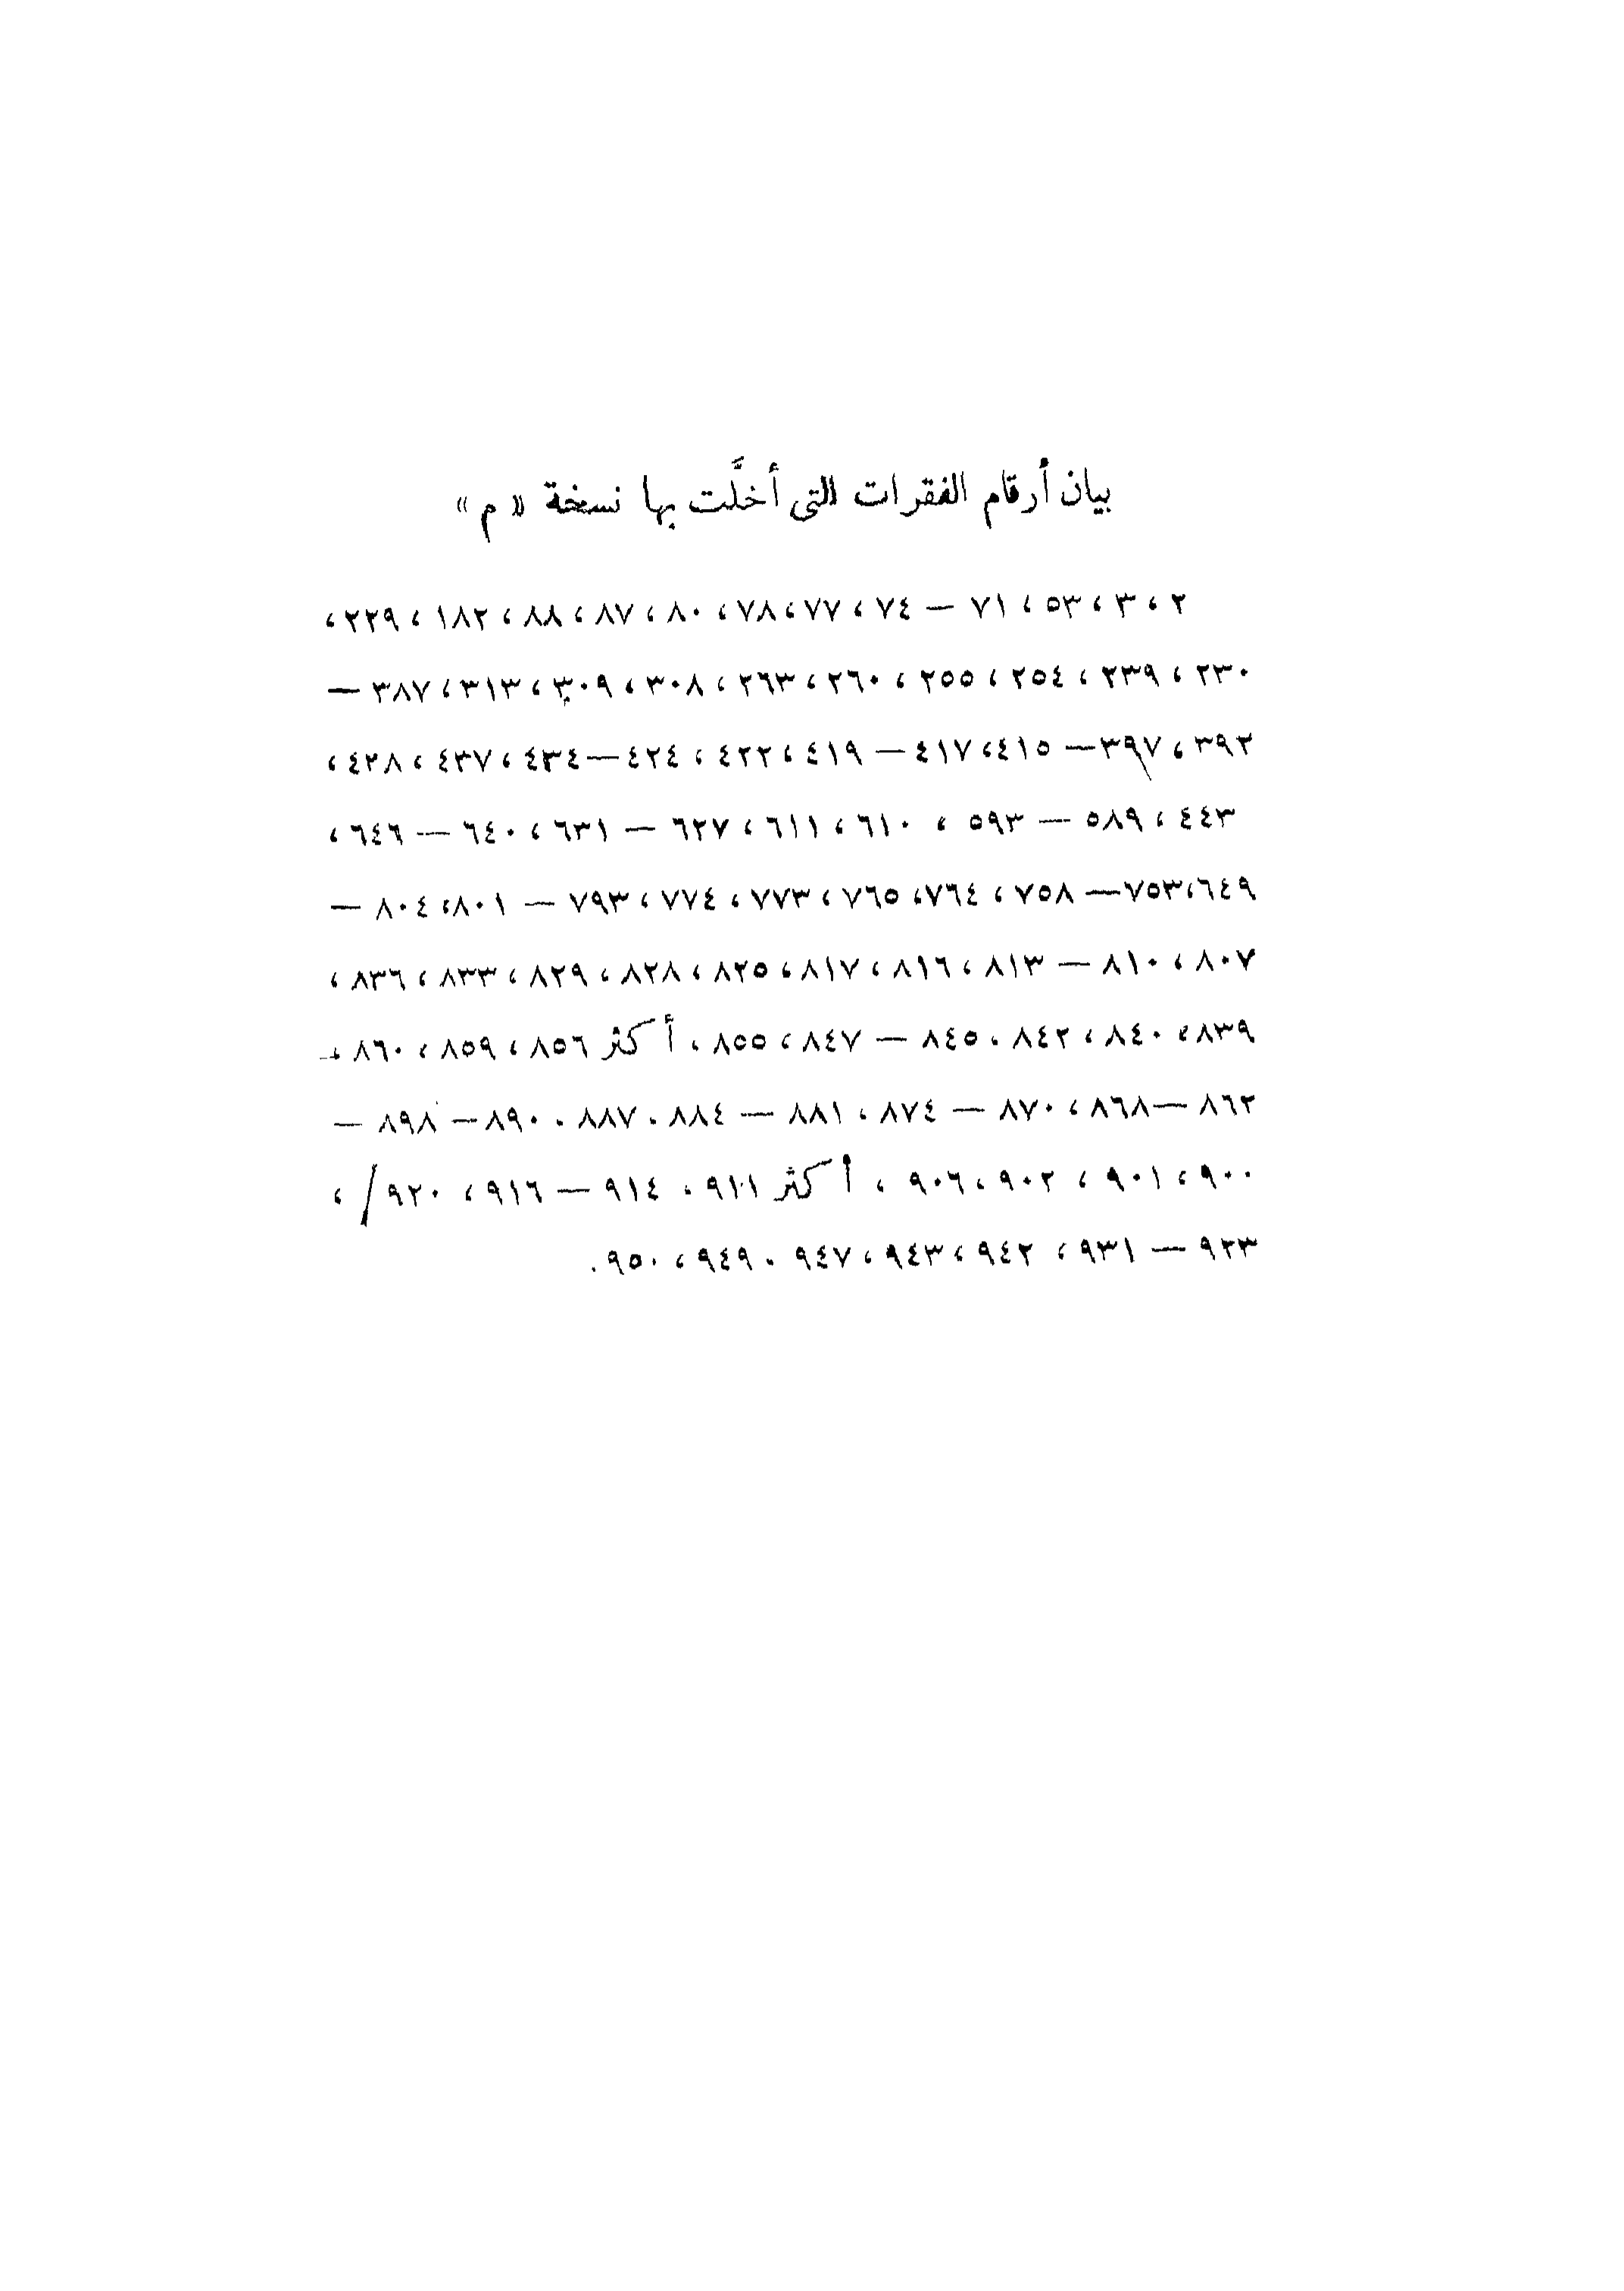 بيان أرقام الفقرات التى أخلَّت بها نسخة « م »
٢ ، ٣ ، ٥٣ ، ٧١ — ٧٤ ، ٧٧ ، ٧٨ ، ٨٠ ، ٨٧ ، ٨٨ ، ١٨٢ ، ٢٢٩ ،
٢٣٠ ، ٢٣٩ ، ٢٥٤ ، ٢٥٥ ، ٢٦٠ ، ٢٦٣ ، ٣٠٨ ، ٣٠٩ ، ٣١٣ ، ٣٨٧ —
٣٩٢ ، ٣٩٧ — ٤١٥ ، ٤١٧ — ٤١٩ ، ٤٢٢ ، ٤٢٤ — ٤٣٤ ، ٤٣٧ ، ٤٢٨ ،
٤٤٣ ، ٥٨٩ — ٥٩٣ ، ٦١٠ ، ٦١١ ، ٦٢٧ — ٦٣١ ، ٦٤٠ — ٦٤٦ ،
٦٤٩ ، ٧٥٣ — ٧٥٨ ، ٧٦٤ ، ٧٦٥ ، ٧٧٣ ، ٧٧٤ ، ٧٩٣ — ٨٠١ ، ٨٠٤ —
٨٠٧ ، ٨١٠ — ٨١٣ ، ٨١٦ ، ٨١٧ ، ٨٢٥ ، ٨٢٨ ، ٨٢٩ ، ٨٣٣ ، ٨٣٦ ،
٨٣٩ ، ٨٤٠ ، ٨٤٢ ، ٨٤٥ — ٨٤٧ ، ٨٥٥ ، أكثر ٨٥٦ ، ٨٥٩ ، ٨٦٠ ،
٨٦٢ — ٨٦٨ ، ٨٧٠ — ٨٧٤ ، ٨٨١ — ٨٨٤ ، ٨٨٧ ، ٨٩٠ — ٨٩٨ —
٩٠٠ ، ٩٠١ ، ٩٠٢ ، ٩٠٦ ، أكثر ٩١١ ، ٩١٤ — ٩١٦ ، ٩٢٠/ ،
٩٢٣ — ٩٣١ ، ٩٤٢ ، ٩٤٣ ، ٩٤٧ ، ٩٤٩ ، ٩٥٠ .